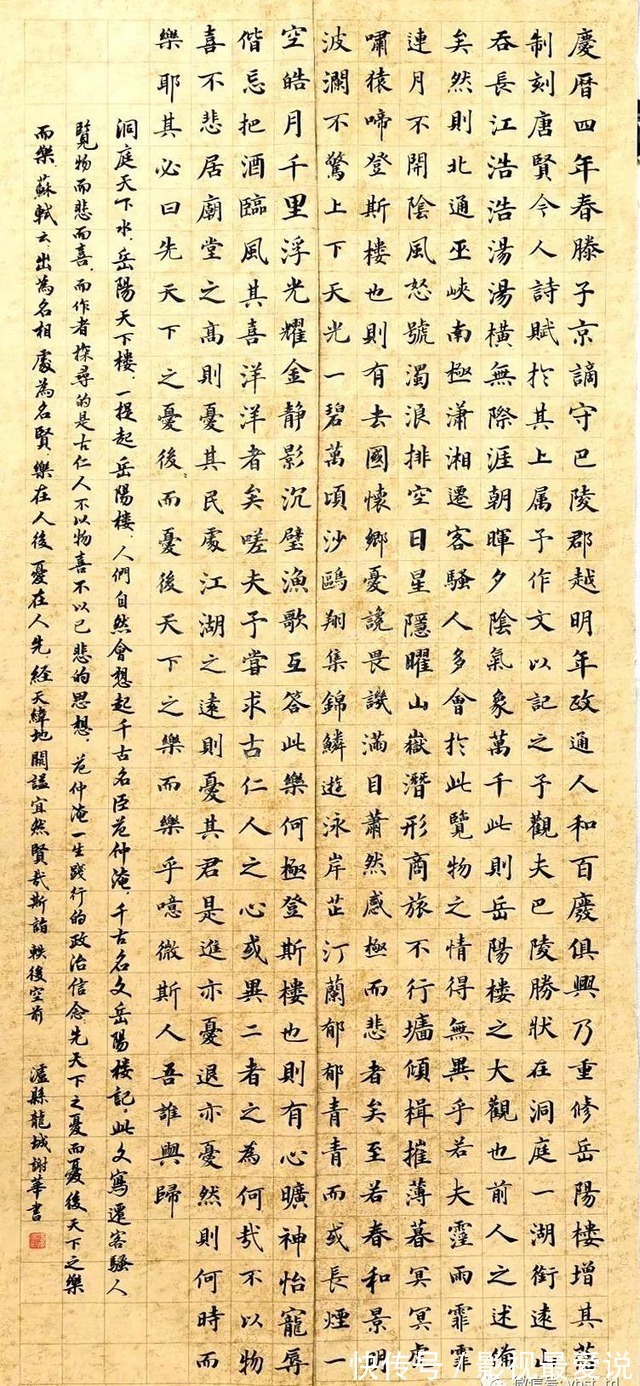 慶曆四年春滕子京謫守巴陵郡越明年政通人和百廢俱興乃重修岳陽楼增其舊
制刻唐賢今人詩賦於其上属予作文以記之予觀夫巴陵勝狀在洞庭一湖銜遠山
吞長江浩浩湯湯橫無際涯朝暉夕陰氣象萬千此則岳陽楼之大觀也前人之述備
矣然則北通巫峽南極瀟湘遷客騷人多會於此覽物之情得無異乎若夫霪雨霏霏
連月不開陰風怒號濁浪排空日星隱曜山嶽潛形商旅不行墻傾楫摧薄暮冥冥虎
嘯猿啼登斯楼也則有去國懷鄉憂讒畏譏滿目蕭然感極而悲者矣至若春和景明
波瀾不驚上下天光一碧萬頃沙鷗翔集錦鱗遊泳岸芷汀蘭郁郁青青而或長煙一
空皓月千里浮光耀金静影沉璧漁歌互答此樂何極登斯楼也則有心曠神怡寵辱
偕忘把酒臨風其喜洋洋者矣嗟夫予嘗求古仁人之心或異二者之為何哉不以物
喜不悲居廟堂之高則憂其民處江湖之遠則憂其君是進亦憂退亦憂然則何時而
樂耶其必曰先天下之憂後而憂後天下之樂而樂乎噫微斯人吾誰與歸
洞庭天下水，岳陽天下楼，一提起岳陽楼，人們自然會想起千古名臣范仲淹，千古名文岳陽楼記，此文寫遷客騷人
覽物而悲而喜，而作者探尋的是古仁人不以物喜不以己悲的思想，范仲淹一生踐行的政治信念，先天下之憂而憂後天下之樂
而樂，蘇軾云出為名相處為名賢樂在人後憂在人先，經天緯地闕謚宜然賢哉斯詣軼後空前 瀘縣龍城謝華書
快传号/影视最爱说
微信号: ybst_td